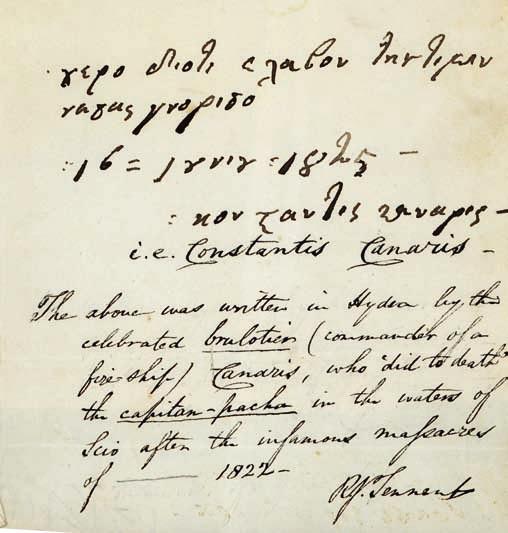 χερο διοτι ελαβον την τιμιν
να σας γνορισο
:16 = Ιουνιου = 1825 —
: κονσταντις καναρις —
i.e. Constantis Canaris —
The above was written in Hydra by the
celebrated brulotier (commander of a
fire ship) Canaris, who "did to death"
the capitan-pacha in the waters of
Scio after the infamous massacres
of —— 1822 —
Tennent